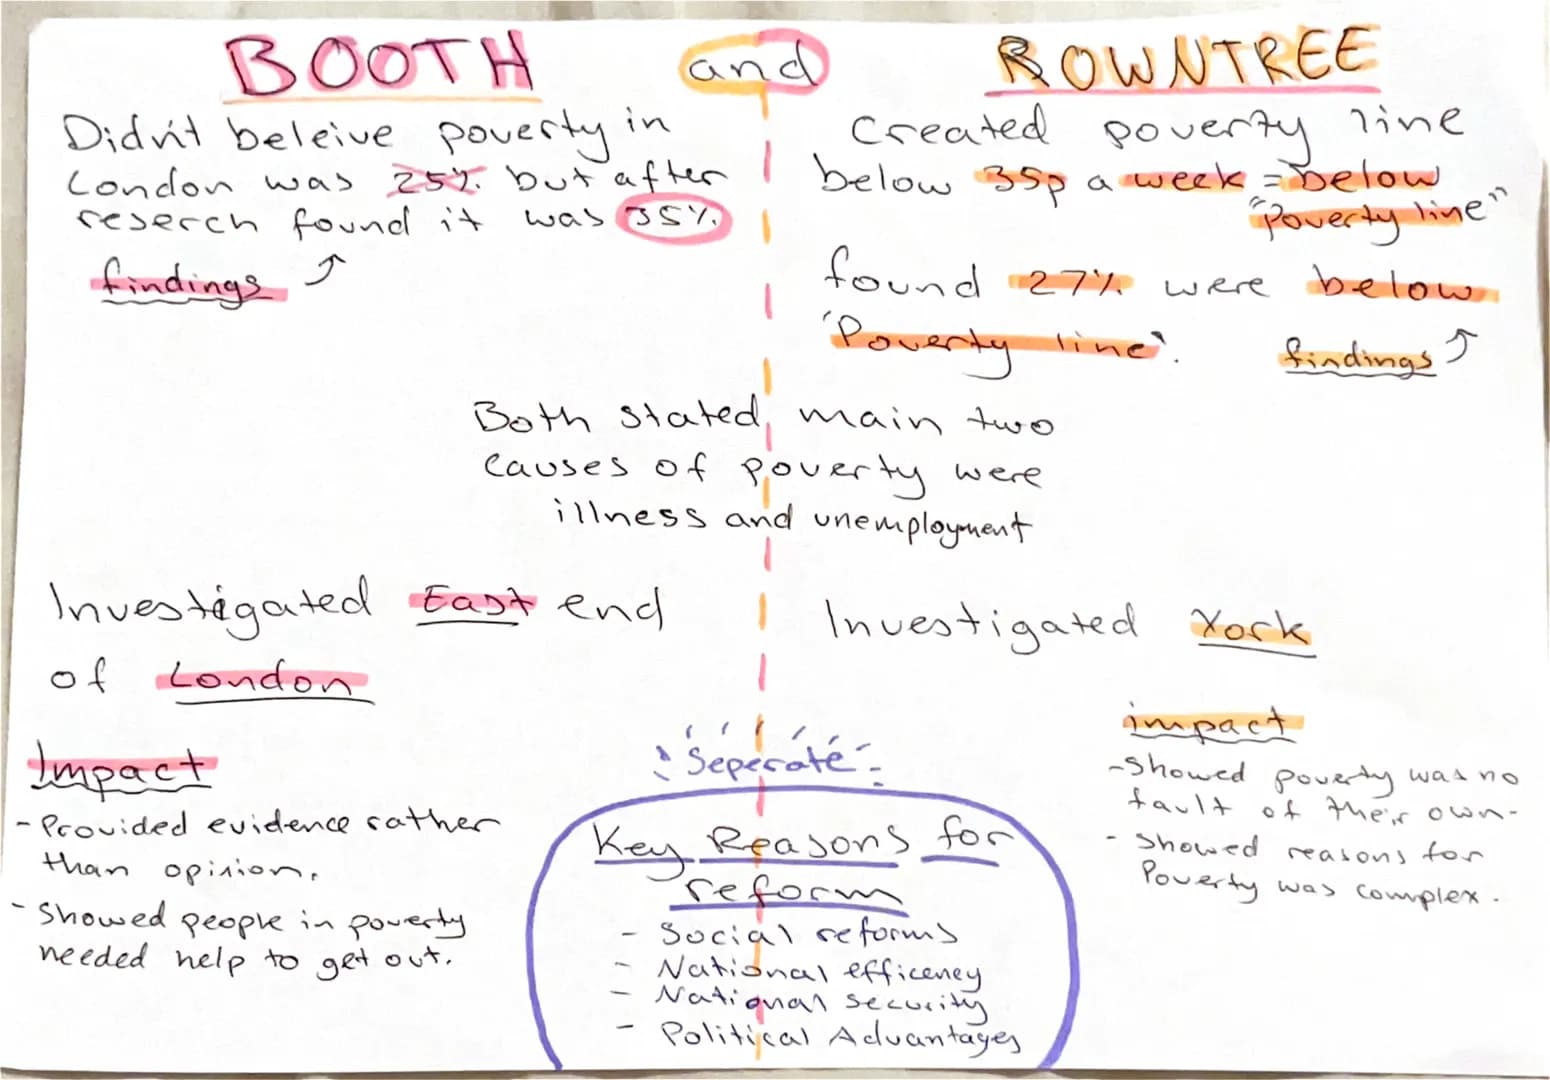 BOOTH and ROWNTREE
Didn't beleive poverty in
London was 25% but after
reserch found it was 35%
findings
Created poverty line
below 35p a week = below
"Poverty line"
found 27% were below
'Poverty line'.
findings
Both stated main two
causes of poverty were
illness and unemployment
Investigated East end
of London
Investigated York
Impact
- Provided evidence rather
than opinion.
- Showed people in poverty
needed help to get out.
impact
- Showed poverty was no
fault of their own-
- Showed reasons for
Poverty was complex.
Seperate
Key Reasons for
reform
- Social reforms
- National efficeney
- National security
- Political Advantages